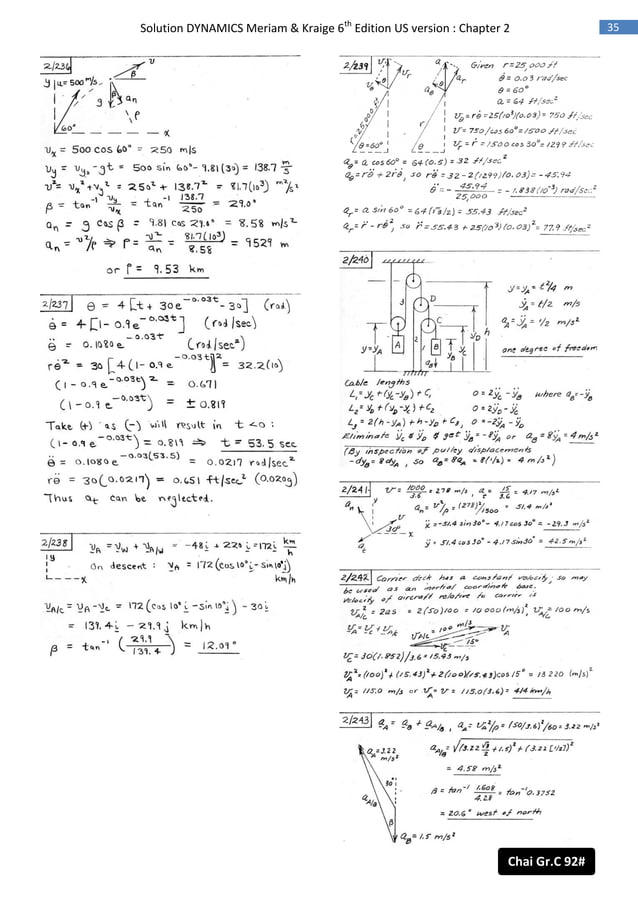 Solution DYNAMICS Meriam & Kraige 6th Edition US version : Chapter 2
35
2/236
y | u = 500 m/s
v
β
g
an
ρ
60°
x
vx = 500 cos 60° = 250 m/s
vy = vy₀ - gt = 500 sin 60° - 9.81(30) = 138.7 m/s
v² = vx² + vy² = 250² + 138.7² = 81.7(10³) m²/s²
β = tan⁻¹ vy/vx = tan⁻¹ 138.7/250 = 29.0°
an = g cos β = 9.81 cos 29.0° = 8.58 m/s²
an = v²/ρ ⇒ ρ = v²/an = 81.7(10³)/8.58 = 9529 m
or ρ = 9.53 km
2/237
θ = 4[t + 30e^-0.03t - 30] (rad)
θ̇ = 4[1 - 0.9e^-0.03t] (rad/sec)
θ̈ = 0.1080e^-0.03t (rad/sec²)
rθ̇² = 30[4(1 - 0.9e^-0.03t)]² = 32.2(10)
(1 - 0.9e^-0.03t)² = 0.671
(1 - 0.9e^-0.03t) = ± 0.819
Take (+) as (-) will result in t < 0 :
(1 - 0.9e^-0.03t) = 0.819 ⇒ t = 53.5 sec
θ̈ = 0.1080e^-0.03(53.5) = 0.0217 rad/sec²
rθ̈ = 30(0.0217) = 0.651 ft/sec² (0.020g)
Thus at can be neglected.
2/238
vA = vW + vA/W = -48i + 220i = 172i km/h
y
On descent : vA = 172(cos 10°i - sin 10°j)
x
km/h
vA/C = vA - vC = 172(cos 10°i - sin 10°j) - 30i
= 139.4i - 29.9j km/h
β = tan⁻¹(29.9/139.4) = 12.09°
2/239
v
vr
vθ
r = 25,000 ft
θ = 60°
a
ar
aθ
r
θ
Given r = 25,000 ft
θ̇ = 0.03 rad/sec
θ = 60°
a = 64 ft/sec²
vθ = rθ̇ = 25(10³)(0.03) = 750 ft/sec
v = 750/cos 60° = 1500 ft/sec
vr = ṙ = 1500 cos 30° = 1299 ft/sec
aθ = a cos 60° = 64(0.5) = 32 ft/sec²
aθ = rθ̈ + 2ṙθ̇, so rθ̈ = 32 - 2(1299)(0.03) = -45.94
θ̈ = -45.94/25,000 = -1.838(10⁻³) rad/sec²
ar = a sin 60° = 64(√3/2) = 55.43 ft/sec²
ar = r̈ - rθ̇², so r̈ = 55.43 + 25(10³)(0.03)² = 77.9 ft/sec²
2/240
3
D
C
2
1
A
B
y = yA
aB
yB
yC
yD
h
y = yA = t²/4 m
ẏA = t/2 m/s
aA = ÿA = 1/2 m/s²
one degree of freedom
Cable lengths
L₁ = yC + (yC - yB) + C₁ 0 = 2ÿC - ÿB where aB = -ÿB
L₂ = yD + (yD - yC) + C₂ 0 = 2ÿD - ÿC
L₃ = 2(h - yA) + h - yD + C₃, 0 = -2ÿA - ÿD
Eliminate ÿC & ÿD & get ÿB = -8ÿA or aB = 8ÿA = 4 m/s²
(By inspection of pulley displacements
-dyB = 8dyA, so aB = 8aA = 8(1/2) = 4 m/s²)
2/241
v = 1000/3.6 = 278 m/s, at = 15/3.6 = 4.17 m/s²
an
y
v
30°
x
at
an = v²/ρ = (278)²/1500 = 51.4 m/s²
ẍ = -51.4 sin 30° - 4.17 cos 30° = -29.3 m/s²
ÿ = 51.4 cos 30° - 4.17 sin 30° = 42.5 m/s²
2/242
Carrier deck has a constant velocity, so may
be used as an inertial coordinate base.
Velocity of aircraft relative to carrier is
vA/C² = 2as = 2(50)100 = 10 000 (m/s)², vA/C = 100 m/s
vA = vC + vA/C
vA/C = 100 m/s
vA
15°
vC
vC = 30(1.852)/3.6 = 15.43 m/s
vA² = (100)² + (15.43)² + 2(100)(15.43)cos 15° = 13 220 (m/s)²
vA = 115.0 m/s or vA = v = 115.0(3.6) = 414 km/h
2/243
aA = aB + aA/B, aA = vA²/ρ = (50/3.6)²/60 = 3.22 m/s²
aA = 3.22 m/s²
30°
aA/B
β
aB = 1.5 m/s²
aA/B = √(3.22 √3/2 + 1.5)² + (3.22 [1/2])²
= 4.58 m/s²
β = tan⁻¹ 1.608/4.28 = tan⁻¹ 0.3752
= 20.6° west of north
Chai Gr.C 92#